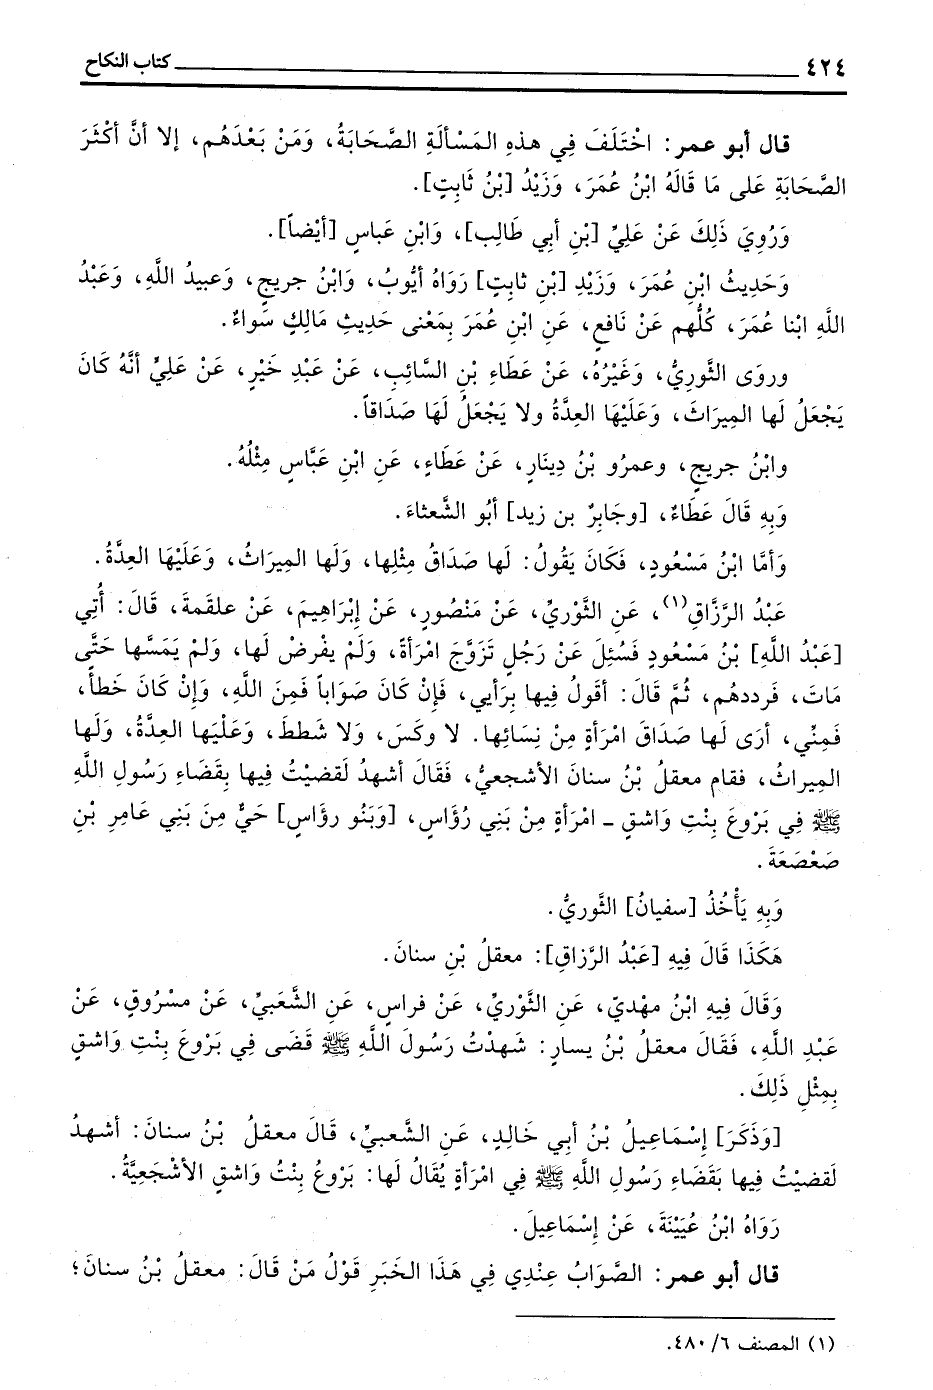 ٤٢٤ ــــــــــــــــــــــــــــــــــــــــــــ كتاب النكاح
قال أبو عمر: اخْتَلَفَ فِي هذهِ المَسْألَةِ الصَّحَابَةُ، وَمَنْ بَعْدَهُم، إلا أنَّ أكْثَرَ
الصَّحَابَةِ عَلى مَا قَالَهُ ابْنُ عُمَرَ، وَزَيْدُ [بْنُ ثَابِتٍ].
وَرُوِيَ ذَلِكَ عَنْ عَلِيِّ [بْنِ أبِي طَالِب]، وَابْنِ عَباسٍ [أيْضاً].
وَحَدِيثُ ابْنِ عُمَرَ، وَزَيْدِ [بْنِ ثابِتٍ] رَوَاهُ أيُّوبُ، وَابْنُ جريجٍ، وَعبيدُ اللَّهِ، وَعَبْدُ
اللَّهِ ابْنا عُمَرَ، كُلُّهم عَنْ نَافعٍ، عَنِ ابْنِ عُمَرَ بِمَعْنى حَدِيثِ مَالِكٍ سَواءً.
وروَى الثَّوريُّ، وَغَيْرُهُ، عَنْ عَطَاءِ بْنِ السَّائِبِ، عَنْ عَبْدِ خَيْرٍ، عَنْ عَلِيٍّ أنَّهُ كَانَ
يَجْعَلُ لَها المِيرَاثَ، وَعَلَيْهَا العِدَّةُ ولا يَجْعَلُ لَهَا صَدَاقاً.
وابْنُ جريجٍ، وعمرُو بْنُ دِينَارٍ، عَنْ عَطَاءٍ، عَنِ ابْنِ عَبَّاسٍ مِثْلُهُ.
وَبِهِ قَالَ عَطَاءٌ، [وجَابِرُ بن زيد] أبُو الشَّعثاءَ.
وَأمَّا ابْنُ مَسْعُودٍ، فَكَانَ يَقُولُ: لَها صَدَاقُ مِثْلِها، وَلَها المِيرَاثُ، وَعَلَيْهَا العِدَّةُ.
عَبْدُ الرَّزَّاقِ(١)، عَنِ الثَّوْريِّ، عَنْ مَنْصُورٍ، عَنْ إبْرَاهِيمَ، عَنْ علقمَةَ، قَالَ: أُتِي
[عَبْدُ اللَّهِ] بْنُ مَسْعُودٍ فَسُئِلَ عَنْ رَجُلٍ تَزَوَّجَ امْرَأةً، وَلَمْ يفْرضْ لَها، وَلَمْ يَمَسَّها حَتَّى
مَاتَ، فَرددهُم، ثُمَّ قَالَ: أقولُ فِيها بِرَأيي، فَإنْ كَانَ صَوَاباً فَمِنَ اللَّهِ، وَإنْ كَانَ خَطأً،
فَمِنِّي، أرَى لَها صَدَاقَ امْرَأةٍ مِنْ نِسَائِها. لا وكَسَ، وَلا شَططَ، وَعَلَيْها العِدَّةُ، وَلَها
المِيراثُ، فقام معقلُ بْنُ سنانَ الأشجعيُّ، فَقَالَ أشهدُ لَقضيْتُ فِيها بِقَضَاءِ رَسُولِ اللَّهِ
ﷺ فِي بَرْوعَ بِنْتِ وَاشقٍ ـ امْرأةٍ مِنْ بَنِي رُؤَاسٍ، [وَبَنُو رؤَاس] حَيٌّ مِنَ بَنِي عَامِرِ بْنِ
صَعْصَعَةَ.
وَبِهِ يَأْخُذُ [سفيانُ] الثَّوريُّ.
هَكَذَا قَالَ فِيهِ [عَبْدُ الرَّزاقِ]: معقلُ بْنِ سنانَ.
وَقَالَ فِيهِ ابْنُ مهْديِّ، عَنِ الثَّوْريِّ، عَنْ فراسٍ، عَنِ الشَّعَبيِّ، عَنْ مسْروُقٍ، عَنْ
عَبْدِ اللَّهِ، فَقَالَ معقلُ بْنُ يسارٍ: شَهدْتُ رَسُولَ اللَّهِ ﷺ قَضَى فِي بَرْوعَ بِنْتِ وَاشقٍ
بِمِثْلِ ذَلِكَ.
[وَذَكَرَ] إسْمَاعِيلُ بْنُ أبِي خَالِدٍ، عَنِ الشَّعبيِّ، قَالَ معقلُ بْنُ سنانَ: أشهدُ
لَقضيْتُ فِيها بَقَضَاءِ رَسُولِ اللَّهِ ﷺ فِي امْرَأةٍ يُقَالُ لَها: بَرْوعُ بِنْتُ وَاشقٍ الأشْجَعِيَّةُ.
رَوَاهُ ابْنُ عُيَيْنَةَ، عَنْ إسْمَاعِيلَ.
قال أبو عمر: الصَّوَابُ عِنْدِي فِي هَذَا الخَبَرِ قَوْلُ مَنْ قَالَ: معقلُ بْنُ سنانَ؛
(١) المصنف ٦/ ٤٨٠.